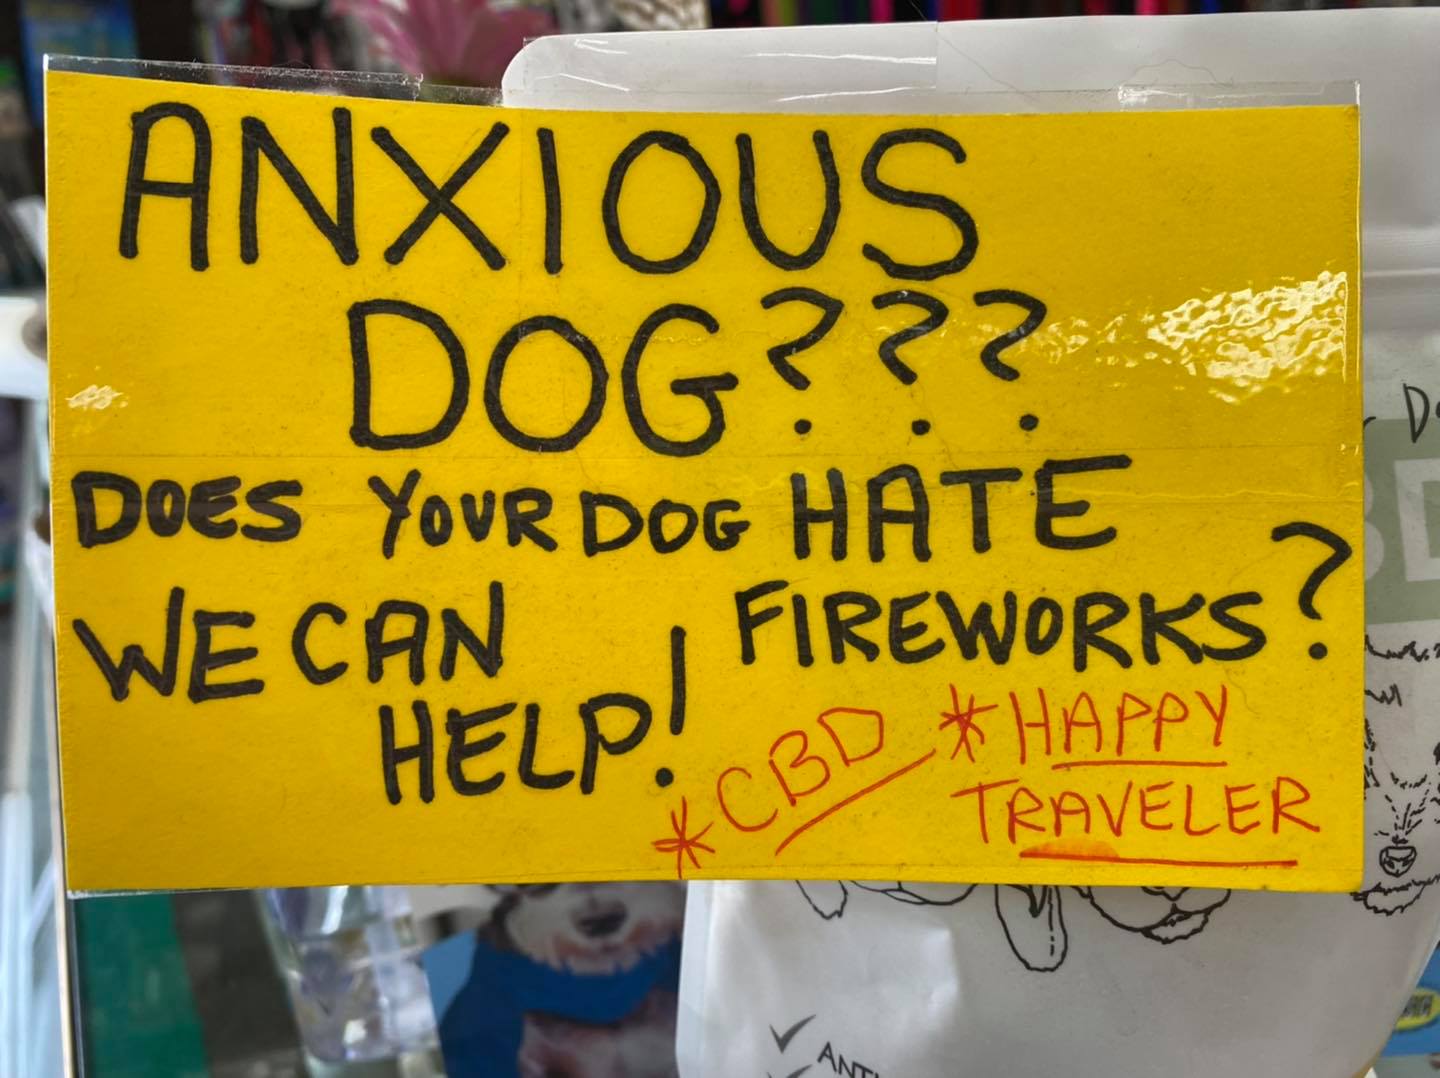 ANXIOUS
DOG???
DOES YOUR DOG HATE
FIREWORKS?
WE CAN
HELP!
*CBD
*HAPPY
TRAVELER